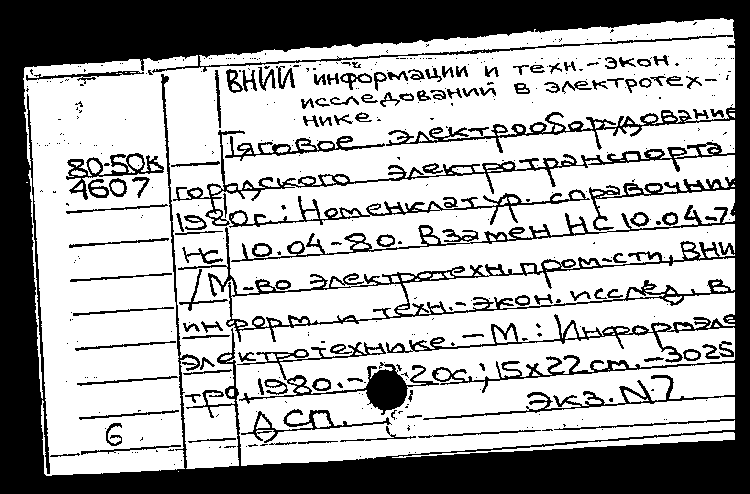 ВНИИ информации и техн.-экон.
исследований в электротех-
нике.
Тяговое электрооборудование
80-50к
4607
городского электротранспорта
1980г.: Номенклатур. справочник
НС 10.04-80. Взамен НС 10.04-7
/М-во электротехн. пром-сти, ВНИ
информ. и техн.-экон. исслед. в
электротехнике. – М.: Информэле
тро, 1980. – 20с.; 15х22см. – 3025
ДСП. Экз. N7.
6